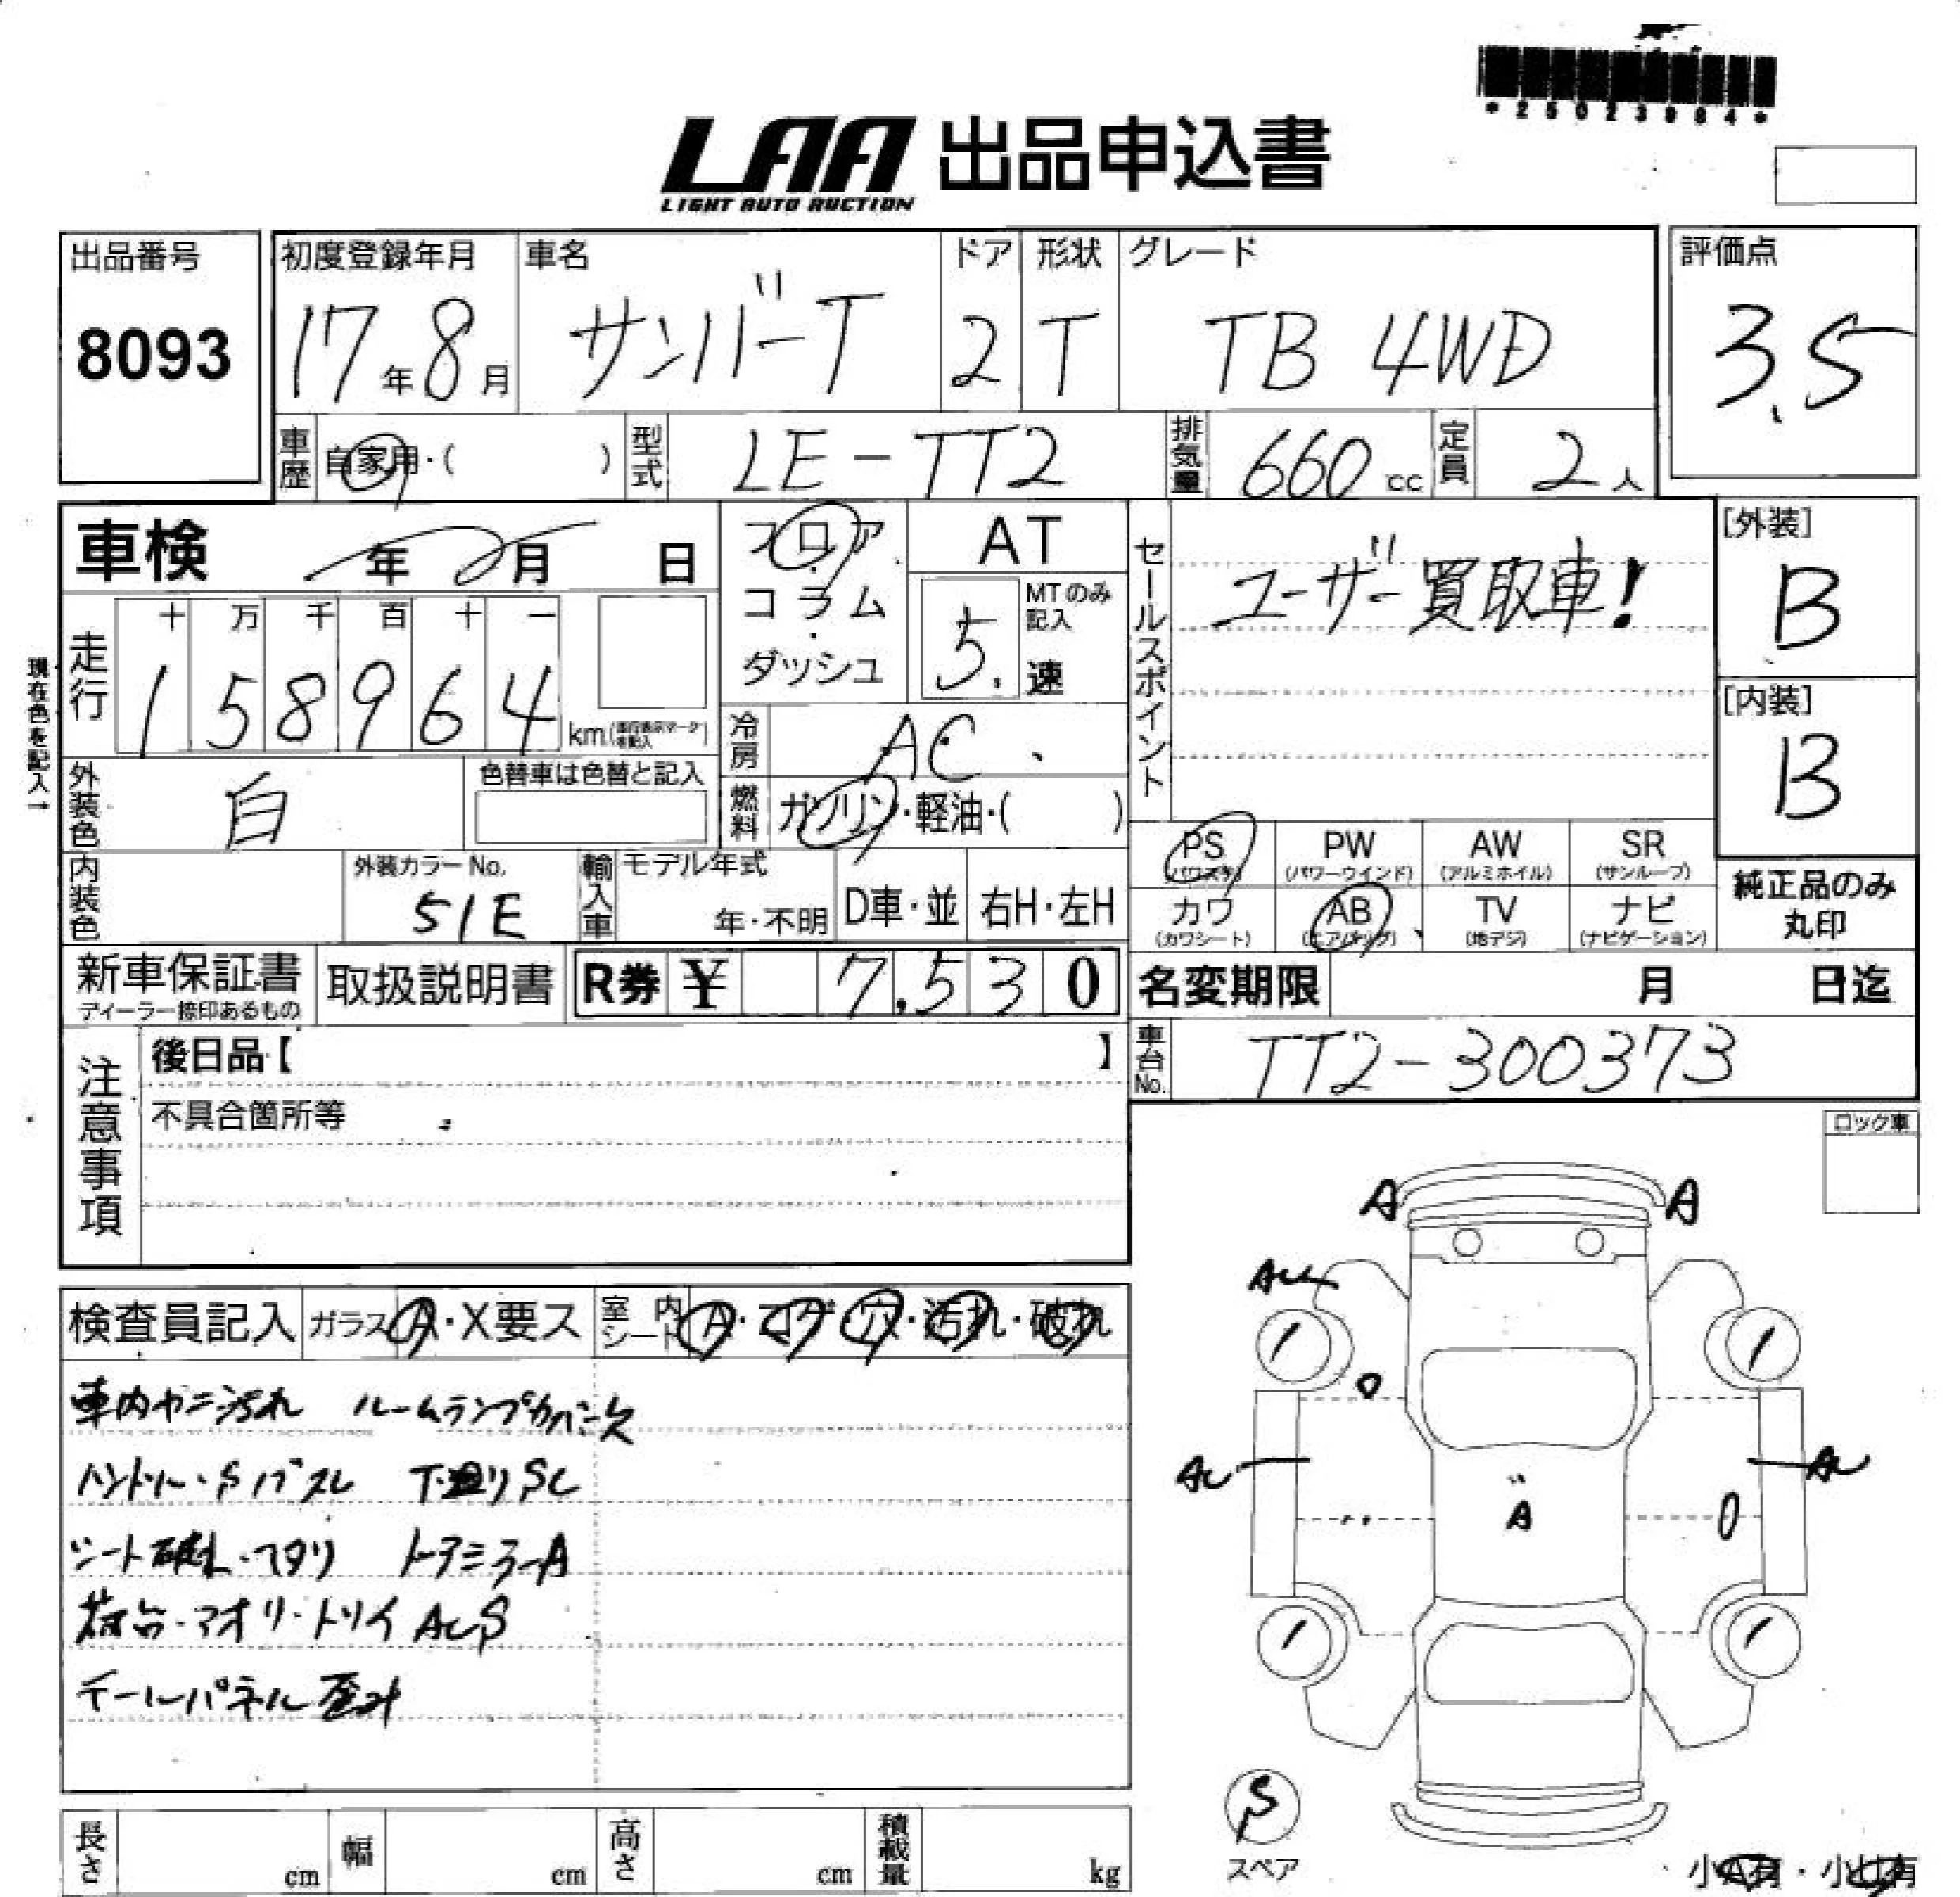 *25023984*
LAA 出品申込書
LIGHT AUTO AUCTION
出品番号 8093
初度登録年月 17年8月
車名 サンバーT
ドア 2
形状 T
グレード TB 4WD
評価点 3.5
車歴 自家用・( )
型式 LE-TT2
排気量 660 cc
定員 2人
車検 年 月 日
フロア・コラム・ダッシュ
AT
MTのみ記入 5速
セールスポイント ユーザー買取車!
[外装] B
現在色を記入→
走行 十 万 千 百 十 一
1 5 8 9 6 4 km
[内装] B
冷房 AC
外装色 白
色替車は色替と記入
燃料 ガソリン・軽油・( )
PS (パワステ)
PW (パワーウインド)
AW (アルミホイル)
SR (サンルーフ)
カワ (カワシート)
AB (エアバッグ)
TV (地デジ)
ナビ (ナビゲーション)
純正品のみ丸印
内装色
外装カラーNo. 51E
輸入車 モデル年式 年・不明
D車・並
右H・左H
新車保証書
ディーラー捺印あるもの
取扱説明書
R券 ¥ 7,530
名変期限 月 日迄
車台No. TT2-300373
注意事項
後日品【 】
不具合箇所等
ロック車
A A
検査員記入 ガラス A・X要ス 室内シート A・コゲ・穴・汚れ・破れ
車内ヤニ汚れ ルームランプカバー欠
ハンドル・Sノブスレ 下廻りSC
シート破れ・ヘタリ ドアミラーA
荷台・アオリ・トリイ ACS
テールパネル歪み
A
S
スペア
長さ cm
幅 cm
高さ cm
積載量 kg
小A有・小U有